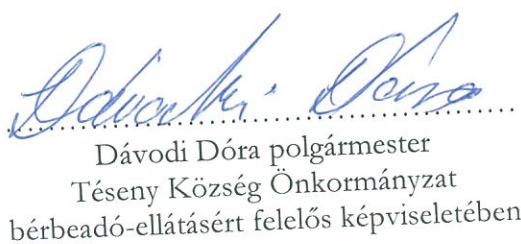 Dávodi Dóra
Dávodi Dóra polgármester
Téseny Község Önkormányzat
bérbeadó-ellátásért felelős képviseletében